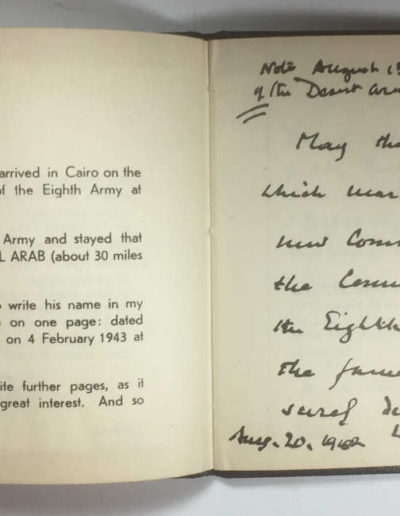 arrived in Cairo on the
of the Eighth Army at
Army and stayed that
L ARAB (about 30 miles
o write his name in my
e on one page: dated
on 4 February 1943 at
ite further pages, as it
great interest. And so
Note August
of the Desert Arm
May tha
which mar
new Comm
the Comm
the Eighth
the fame
surely
Aug. 20. 1942